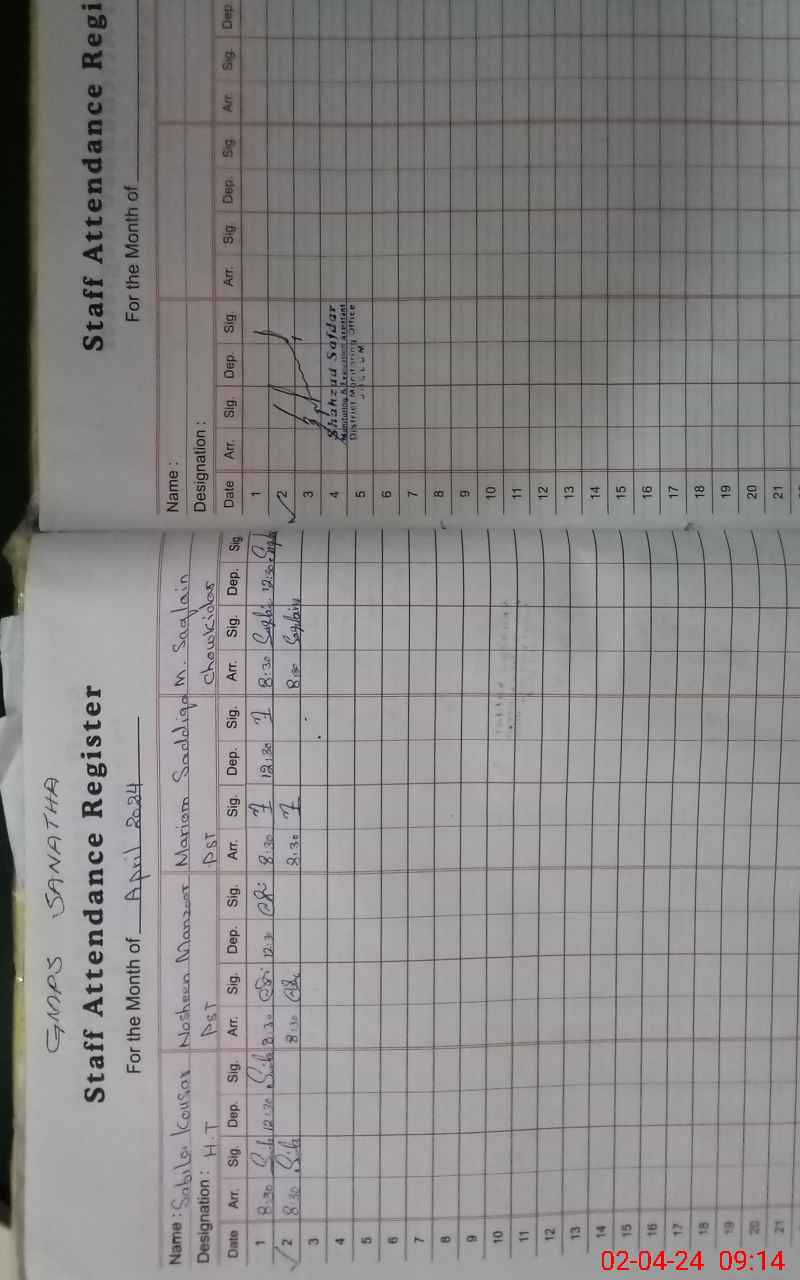 GMPS SANATHA
Staff Attendance Register
For the Month of April 2024
Name : Sabila Kousar Nosheen Manzoor Mariam Saddiqa M. Saqlain
Designation : H.T PST PST Chowkidar
Date Arr. Sig. Dep. Sig. Arr. Sig. Dep. Sig. Arr. Sig. Dep. Sig. Arr. Sig. Dep. Sig.
1 8:30 12:30 8:30 12:30 8:30 12:30 8:30 Saqlain 12:30
2 8:30 8:30 8:30 8:00 Saqlain
3
4
5
6
7
8
9
10
11
12
13
14
15
16
17
18
19
20
21
Staff Attendance Regi
For the Month of
Name :
Designation :
Date Arr. Sig. Dep. Sig. Arr. Sig. Dep. Sig. Arr. Sig. Dep.
1
2
3
4
5
6
7
8
9
10
11
12
13
14
15
16
17
18
19
20
21
Shahzad Safdar
Monitoring & Evaluation Assistant
District Monitoring Office
JHELUM
02-04-24 09:14